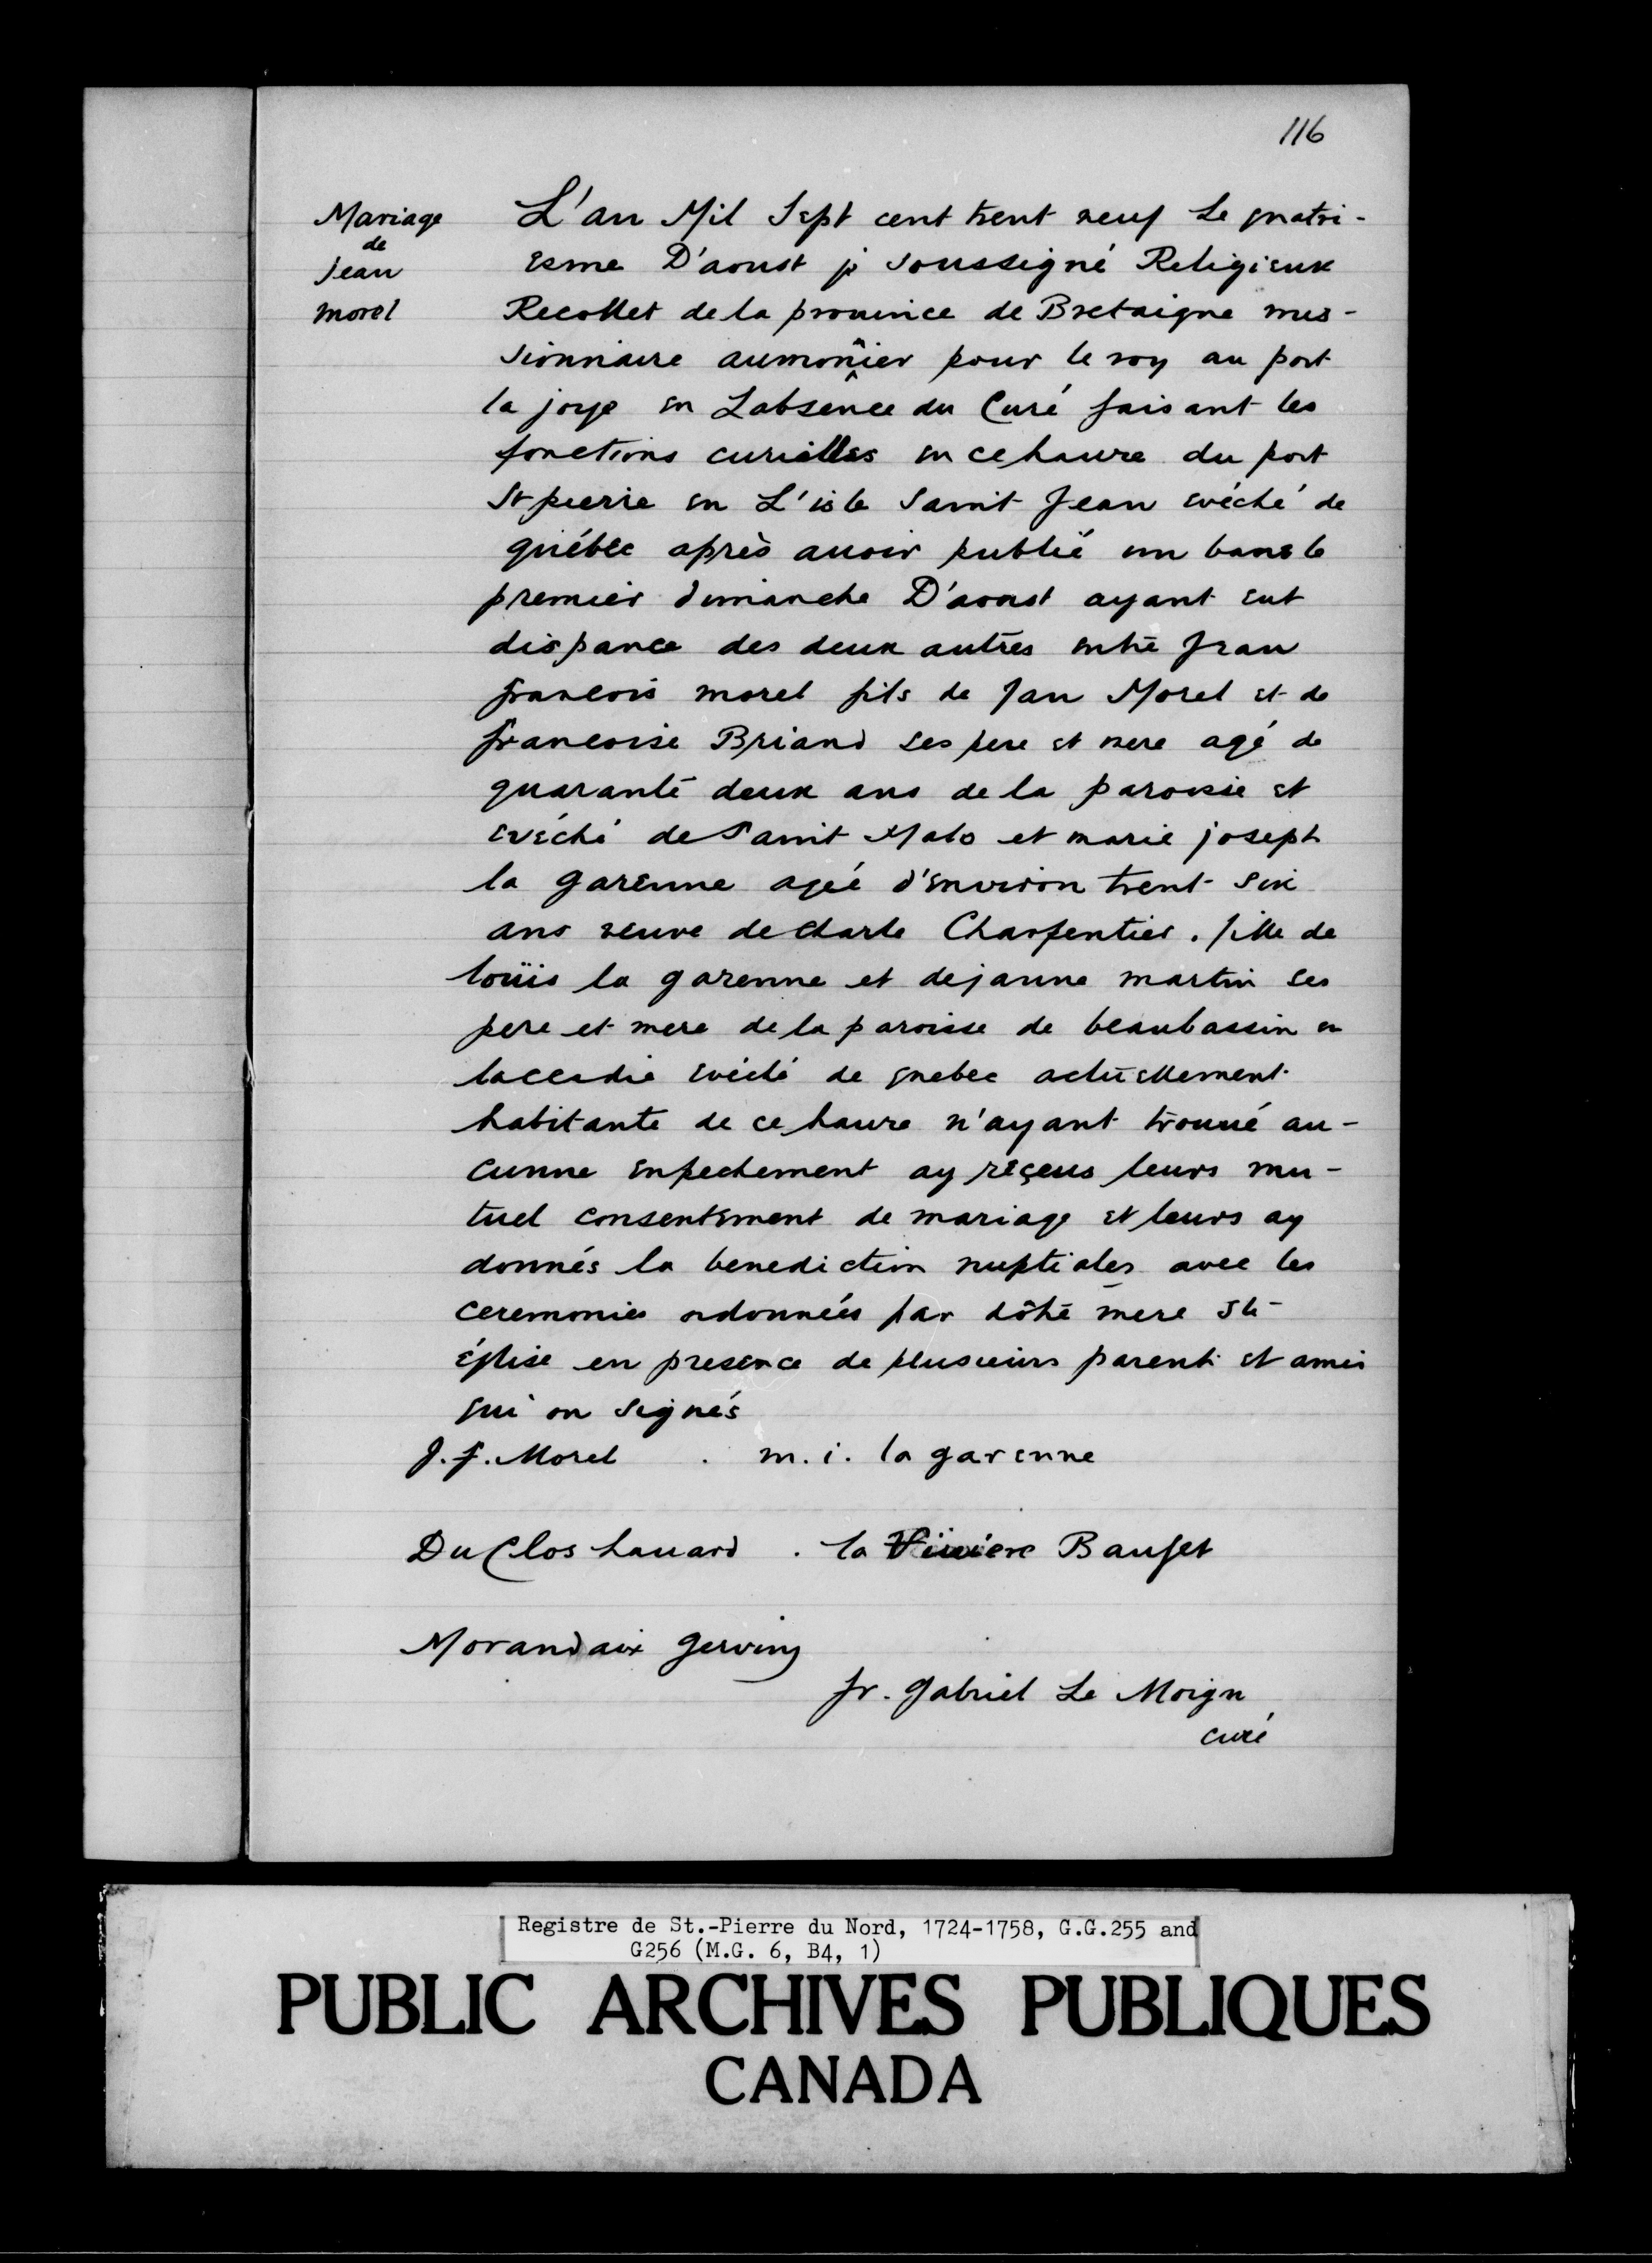 116
Mariage
de
Jean
morel
L'an Mil Sept cent trent neuf Le quatri-
esme D'aoust je soussigné Religieux
Recollet de la prouince de Bretaigne mis-
sionnaire aumonier pour le roy au port
la joye en Labsence du Curé faisant les
fonctions curialles en ce haure du port
St pierre en L'isle Saint Jean evéché de
quiébec après auoir publié un bans le
premier dimanche D'aoust ayant eut
dispance des deux autres entre Jean
francois morel fils de Jan Morel et de
francoise Briand ses pere et mere agé de
quarante deux ans de la paroisse et
evéché de Saint Malo et marie joseph
la garenne agée d'environ trent six
ans veuve de charle Charpentier. fille de
loüis la garenne et de jeanne martin ses
pere et mere de la paroisse de beaubassin en
laccadie evéché de quebec actuellement
habitante de ce haure n'ayant trouué au-
cunne enpechement ay reçeus leurs mu-
tuel consentement de mariage et leurs ay
donnés la benediction nuptiales avec les
ceremonies ordonnées par nôtre mere Ste
église en presence de plusieurs parent et amis
qui on signés
J. f. Morel . m. i. la garenne
Du Clos hauard . la Viuiere Bauget
Morandaix gerviny
fr. gabriel Le Moign
curé
Registre de St.-Pierre du Nord, 1724-1758, G.G.255 and
G256 (M.G. 6, B4, 1)
PUBLIC ARCHIVES PUBLIQUES
CANADA